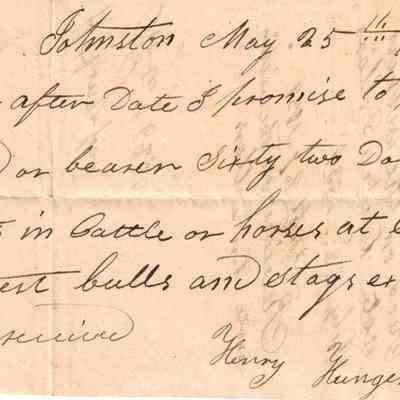 Johnston May 25th
after Date I promise to
or bearer Sixty two Do
in Cattle or horses at
bulls and stags ex
Henry Hunge